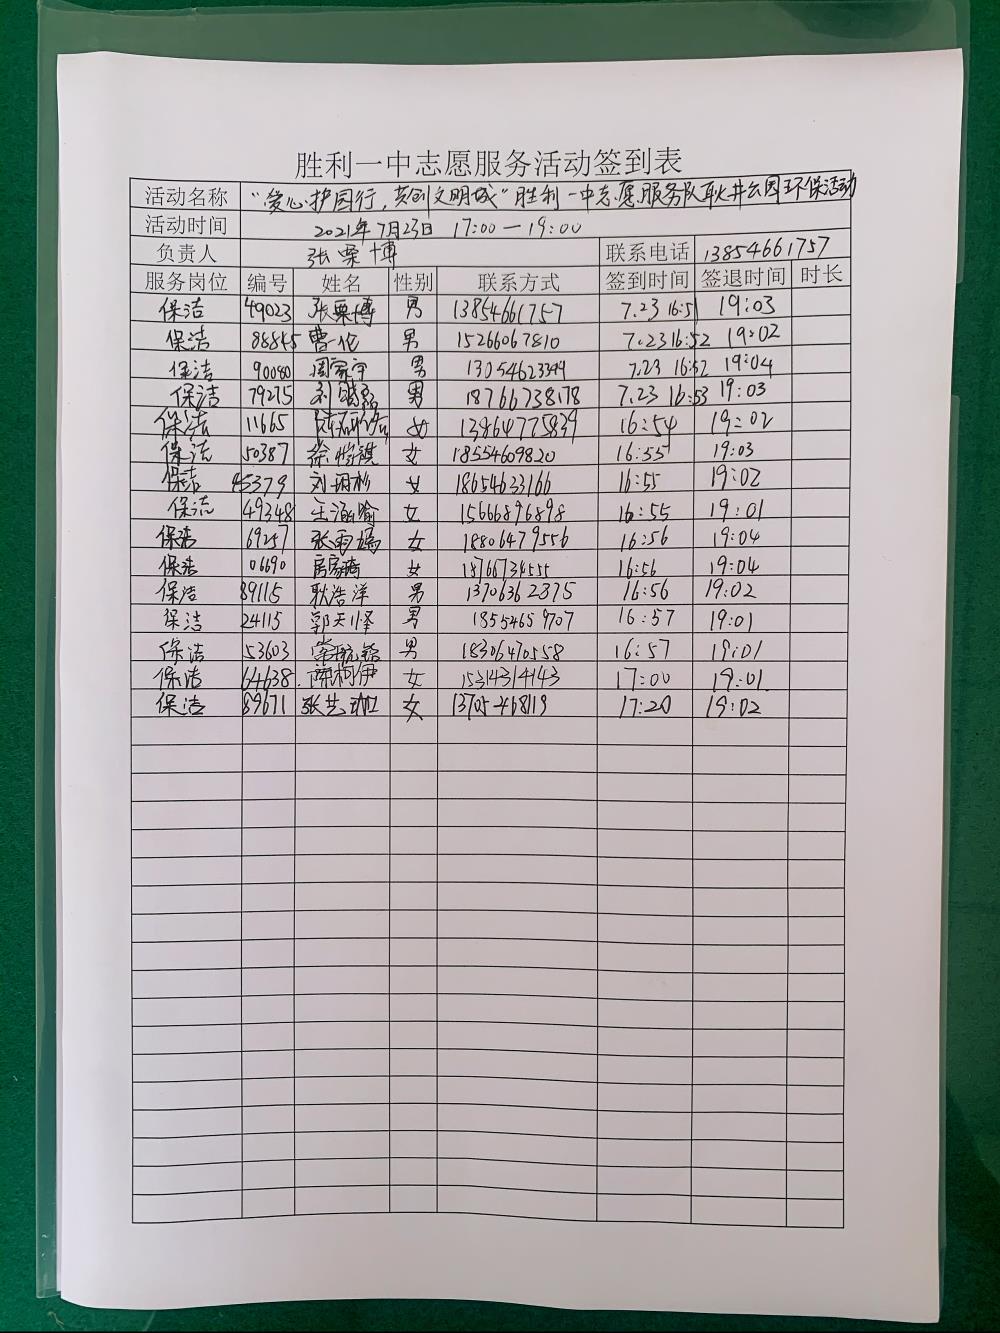 胜利一中志愿服务活动签到表
活动名称 "爱心护园行,共创文明城"胜利一中志愿服务队耿井公园环保活动
活动时间 2021年7月23日 17:00—19:00
负责人 张栗博 联系电话 13854661757
服务岗位 编号 姓名 性别 联系方式 签到时间 签退时间 时长
保洁 49023 张栗博 男 13854661757 7.23 16:51 19:03
保洁 88845 曹一伦 男 15266067810 7.23 16:52 19:02
保洁 90080 周家宇 男 13054623399 7.23 16:52 19:04
保洁 79275 刘 男 18766738178 7.23 16:53 19:03
保洁 11665 女 13864775839 16:54 19:02
保洁 50387 徐 女 18554609820 16:55 19:03
保洁 45379 刘玥杉 女 18654633166 16:55 19:02
保洁 49348 王涵瑜 女 15666896898 16:55 19:01
保洁 69257 张雨嫣 女 18806479556 16:56 19:04
保洁 06690 房家琦 女 18766734555 16:56 19:04
保洁 89115 耿浩洋 男 13706362375 16:56 19:02
保洁 24115 郭天怿 男 18554659707 16:57 19:01
保洁 53603 常 男 18306470558 16:57 19:01
保洁 64638 陈柯伊 女 15314314143 17:00 19:01
保洁 89671 张艺珈 女 13705468119 17:20 19:02